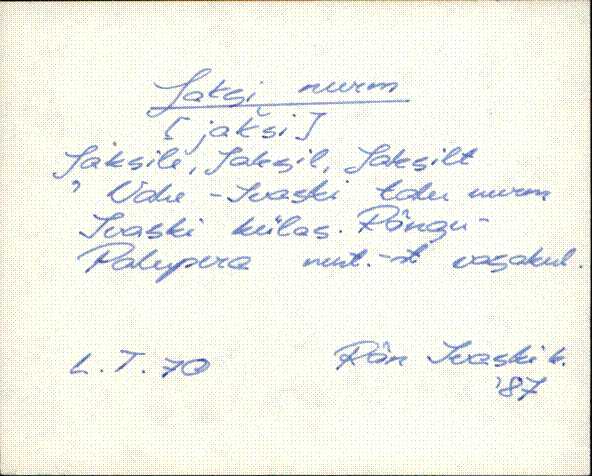 Jaksi nurm
[jakši]
Jaksile, Jaksil, Jaksilt
Vahe-Ivaski talu nurm
Ivaski külas. Rõngu-
Palupera mnt.-st vasakul.
L. T. 70 Rõn Ivaski k.
'87